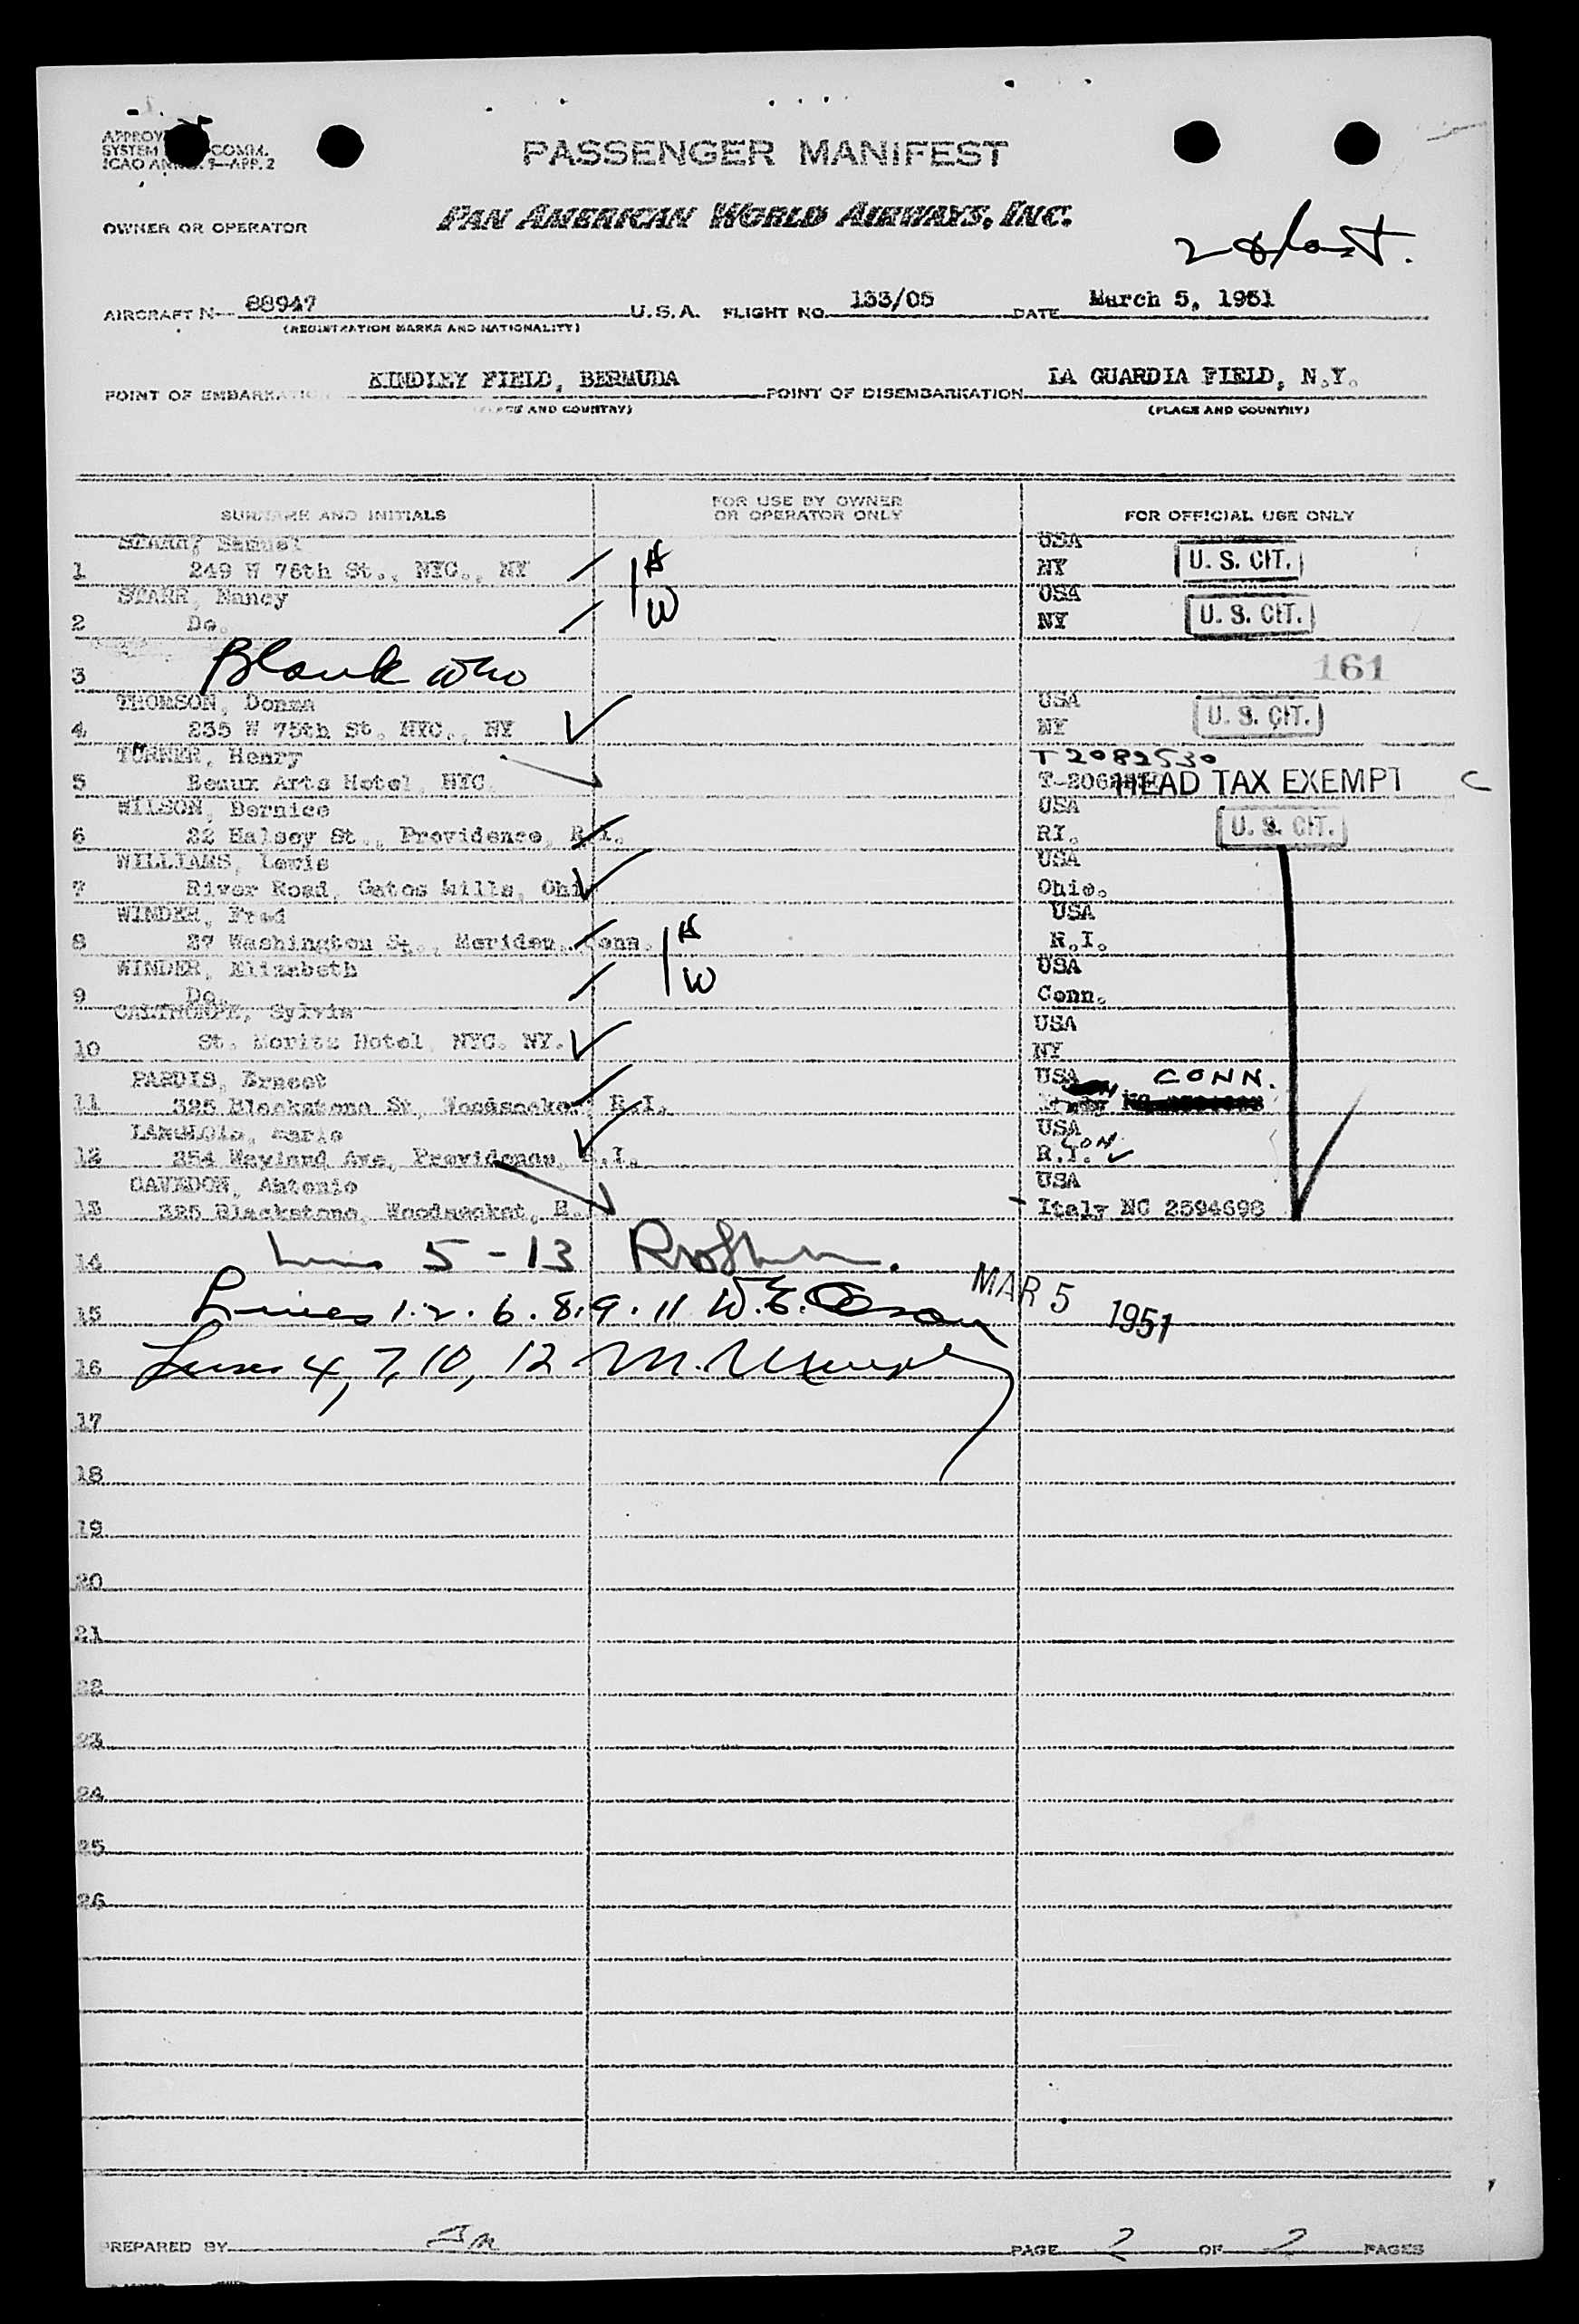 PASSENGER MANIFEST
SYSTEM COMM.
ICAO 9—APP. 2
OWNER OR OPERATOR PAN AMERICAN WORLD AIRWAYS, INC.
2 & last.
AIRCRAFT N— 88947 U.S.A. FLIGHT NO. 133/05 DATE March 5, 1951
(REGISTRATION MARKS AND NATIONALITY)
POINT OF EMBARKATION KINDLEY FIELD, BERMUDA POINT OF DISEMBARKATION LA GUARDIA FIELD, N.Y.
(PLACE AND COUNTRY) (PLACE AND COUNTRY)
SURNAME AND INITIALS FOR USE BY OWNER OR OPERATOR ONLY FOR OFFICIAL USE ONLY
STARR, Samuel USA
1 249 W 76th St., NYC., NY H NY U. S. CIT.
STARR, Nancy USA
2 Do. W NY U. S. CIT.
3 Blank 161
THOMSON, Donna USA
4 235 W 75th St. NYC., NY NY U. S. CIT.
TURNER, Henry T2082530
5 Beaux Arts Hotel, NYC. HEAD TAX EXEMPT C
WILSON, Bernice USA
6 22 Halsey St., Providence, R.I. RI. U. S. CIT.
WILLIAMS, Lewis USA
7 River Road, Gates Mills, Ohio Ohio.
WINDER, Fred USA
8 27 Washington St., Meriden, Conn. H R.I.
WINDER, Elizabeth USA
9 Do. W Conn.
CALTHORPE, Sylvia USA
10 St. Moritz Hotel, NYC. NY. NY
PARDIS, Ernest USA CONN.
11 325 Blackstone St, R.I.
LANGLOIS, Marie USA
12 354 Wayland Ave, Providence, R.I. R.I. CON
CAVEDON, Antonio USA
13 325 Blackstone, Woodsocket, R. Italy NC 2594698
14 Lines 5 - 13
15 Lines 1. 2. 6. 8. 9. 11 W. E. MAR 5 1951
16 Lines 4, 7, 10, 12 M.
17
18
19
20
21
22
23
24
25
26
PREPARED BY PAGE 2 OF 2 PAGES